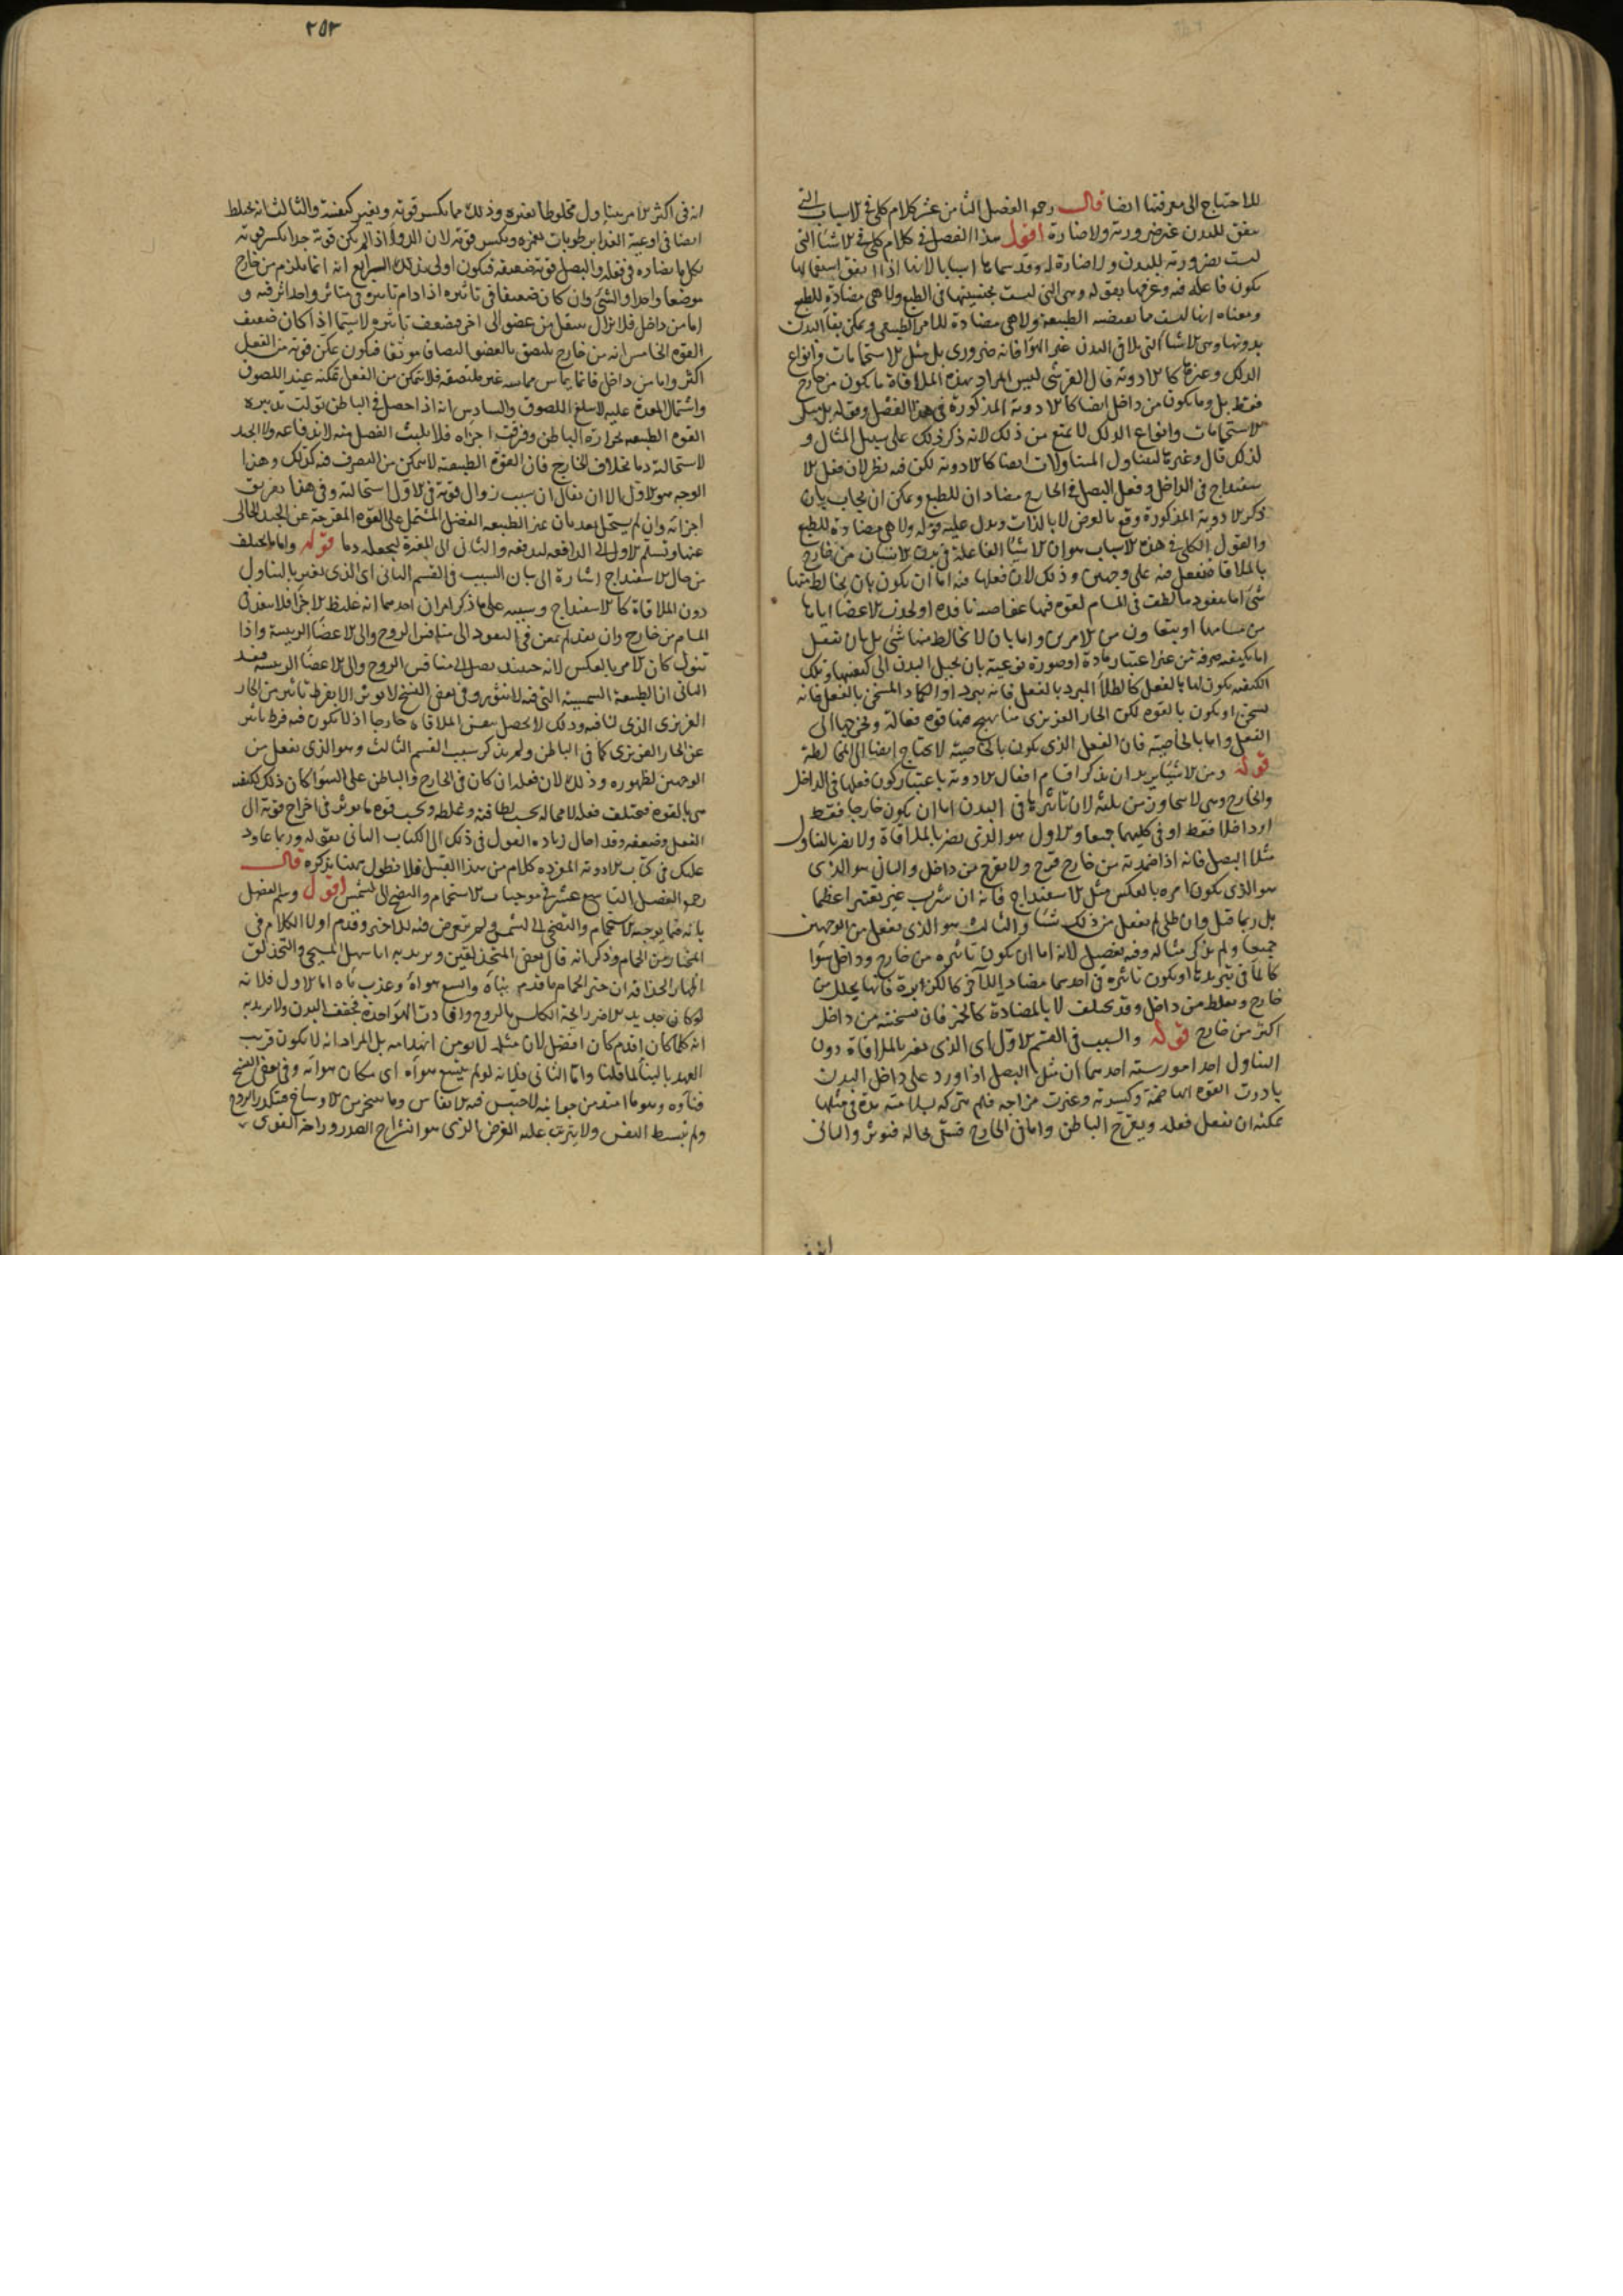 للاحتياج الى معرفتها ايضا قال رحمه الفصل الثامن عشر كلام كلى فى الاسباب التى
تتفق للبدن غير ضرورية ولا ضارة اقول هذا الفصل فى كلام كلى فى الاشيا التى
ليست بضرورية للبدن ولا ضارة له وقد سماها اسبابا لانها اذا اتفق استعمالها
يكون فاعلة فيه وعرفها بقوله وهى التى ليست بجنسيتها فى الطبع ولا هى مضادة للطبع
ومعناه انها ليست مما تقتضيه الطبيعة ولا هى مضادة للامر الطبيعى ويمكن بقا البدن
بدونها وهى الاشيا التى تلاقى البدن غير الهوا فانه ضرورى بل مثل الاستحمامات وانواع
الدلك وغيرها كالادوية قال القرشى ليس المراد بهذه الملاقاة ما يكون من خارج
فقط بل وما يكون من داخل ايضا كالادوية المذكورة فى هذا الفصل وقوله بل مثل
الاستحمامات وانواع الدلك لا يمنع من ذلك لانه ذكر ذلك على سبيل المثال و
لذلك قال وغيرها ليتناول المتناولات ايضا كالادوية لكن فيه نظر لان فعل الا
سفيداج فى الداخل وفعل البصل فى الخارج مضادان للطبع ويمكن ان يجاب بان
ذكر الادوية المذكورة وقع بالعرض لا بالذات ويدل عليه قوله ولا هى مضادة للطبع
والقول الكلى فى هذه الاسباب هو ان الاشيا الفاعلة فى بدن الانسان من خارج
بالملاقاة تفعل فيه على وجهين وذلك لان فعلها فيه اما ان يكون بان يخالطه منها
شى اما بنفوذ ما لطف فى المسام لقوة فيها غواصة نافذة او لجذب الاعضا اياها
من مسامها او بتعاون من الامرين واما بان لا يخالط منها شى بل بان تفعل
اما بكيفية صرفة من غير اعتبار مادة او صورة نوعية بان يحيل البدن الى كيفيتها وتلك
الكيفية يكون لها بالفعل كالطلا المبرد بالفعل فانه يبرد او الكماد المسخن بالفعل فانه
يسخن او يكون بالقوة لكن الحار الغريزى منا يهيج منها قوة فعالة ويخرجها الى
الفعل واما بالخاصية فان الفعل الذى يكون بالخاصية لا يحتاج ايضا الى المخالطة
قوله ومن الاشيا يريد ان يذكر اقسام افعال الادوية باعتبار كون فعلها فى الداخل
والخارج وهى لا تتجاوز من ثلثة لان تاثيرها فى البدن اما ان يكون خارجا فقط
او داخلا فقط او فى كليهما جميعا والاول هو الذى يضر بالملاقاة ولا يضر بالتناول
مثلا البصل فانه اذا ضمد به من خارج قرح ولا يقرح من داخل والثانى هو الذى
هو الذى يكون امره بالعكس مثل الاسفيداج فانه ان شرب غير تغييرا عظيما
بل ربما قتل وان طلى لم يفعل من ذلك شيا والثالث هو الذى يفعل من الوجهين
جميعا ولم يذكر مثاله وفيه تفصيل لانه اما ان يكون تاثيره من خارج وداخل سوا
كالما فى تبريدها او يكون تاثيره فى احدهما مضادا للاخر كالكزبرة فانها يحلل من
خارج ويغلظ من داخل وقد يختلف لا بالمضادة كالخبز فان تسخينه من داخل
اكثر من خارج قوله والسبب فى القسم الاول اى الذى يضر بالملاقاة دون
التناول احد امور ستة احدهما ان مثل البصل اذا ورد على داخل البدن
بادرت القوة الهاضمة وكسرته وغيرت مزاجه فلم تتركه بسلامته مدة فى مثلها
يمكنه ان يفعل فعله ويقرح الباطن واما فى الخارج فيبقى بحاله فيؤثر والثانى
انه
٢٥٣
انه فى اكثر الامر يتناول مخلوطا بغيره وذلك مما يكسر قوته ويغير كيفيته والثالث انه يختلط
ايضا فى اوعية الغذا برطوبات تغمره ويكسر قوته لان الدوا اذا لم يكن قوته جدا يكسر قوته
بكل ما يضاره فى فعله والبصل قوته ضعيفة فيكون اولى بذلك الرابع انه انما يلزم من خارج
موضعا واحدا والشى وان كان ضعيفا فى تاثيره اذا دام تاثيره فى متاثر واحد اثر فيه و
اما من داخل فلا يزال ينتقل من عضو الى اخر فيضعف تاثيره لا سيما اذا كان ضعيف
القوة الخامس انه من خارج يلتصق بالعضو التصاقا موثقا فيكون تمكن قوته من الفعل
اكثر واما من داخل فانما يماس مماسة غير ملتصقة فلا يتمكن من الفعل تمكنه عند اللصوق
واشتمال المعدة عليه لا يبلغ اللصوق والسادس انه اذا حصل فى الباطن تولت تدبيره
القوة الطبيعية بحرارة الباطن وفرقت اجزاه فلا يلبث الفضل منه لاندفاعه ولا الجيد
لاستحالته دما بخلاف الخارج فان القوة الطبيعية لا تتمكن من التصرف فيه كذلك وهذا
الوجه هو الاول الا ان يقال ان سبب زوال قوته فى الاول استحالته وفى هذا تفريق
اجزائه وان لم يستحل بعد بان يميز الطبيعة الفضل المشتمل على القوة المقرحة عن الجيد الخالى
عنها وتسلم الاول الى الدافعة لتدفعه والثانى الى المغيرة ليجعله دما قوله واما المختلف
من حال الاسفيداج اشارة الى بيان السبب فى القسم الثانى اى الذى يغير بالتناول
دون الملاقاة كالاسفيداج وسببه على ما ذكر امران احدهما انه غليظ الاجزا فلا ينفذ فى
المسام من خارج وان نفذ لم يمعن فى النفوذ الى منافس الروح والى الاعضا الرئيسة واذا
تنوول كان الامر بالعكس لانه حينئذ يصل الى منافس الروح والى الاعضا الرئيسة
الثانى ان الطبيعة السمية التى فيه لا تثور وفى بعض النسخ لا تؤثر الا بفرط تاثير من الحار
الغريزى الذى لنا فيه وذلك لا يحصل بنفس الملاقاة خارجا اذ لا يكون فيه فرط تاثير
عن الحار الغريزى كما فى الباطن ولم يذكر سبب القسم الثالث وهو الذى يفعل من
الوجهين لظهوره وذلك لان فعله ان كان فى الخارج والباطن على السوا كان ذلك لكيفية
هى بالقوة فيختلف فعله لا محالة بحسب لطافته وغلظه وبحسب قوة ما يؤثر فى اخراج قوته الى
الفعل وضعفه وقد احال زيادة القول فى ذلك الى الكتاب الثانى بقوله وربما عاود
عليك فى كتاب الادوية المفردة كلام من هذا القبيل فلا نطول ههنا بذكره قال
رحمه الفصل التاسع عشر فى موجبات الاستحمام والتضحى للشمس اقول وسم الفصل
بانه فيما يوجبه الاستحمام والتضحى للشمس ولم يتعرض فيه للاخير وقدم اولا الكلام فى
المختار من الحمام وذكر انه قال بعض المتحذلقين ويريد به اباسهل المسيحى والتحذلق
اظهار الحذاقة ان خير الحمام ما قدم بناؤه واتسع هواؤه وعذب ماؤه اما الاول فلانه
لو كان جديد الاضر رائحة الكلس بالروح وافادت الهوا حدة تجفف البدن ولا يريد به
انه كلما كان اقدم كان افضل لان مثله لا يؤمن انهدامه بل المراد انه لا يكون قريب
العهد بالبنا لما قلنا واما الثانى فلانه لو لم يتسع هواؤه اى مكان هواؤه وفى بعض النسخ
فناؤه وهو ما امتد من جوانبه لاحتبس فيه الانفاس وما يتبخر من الاوساخ فيتكدر الروح
ولم تبسط النفس ولا يترتب عليه الغرض الذى هو انشراح الصدر وراحة القوى